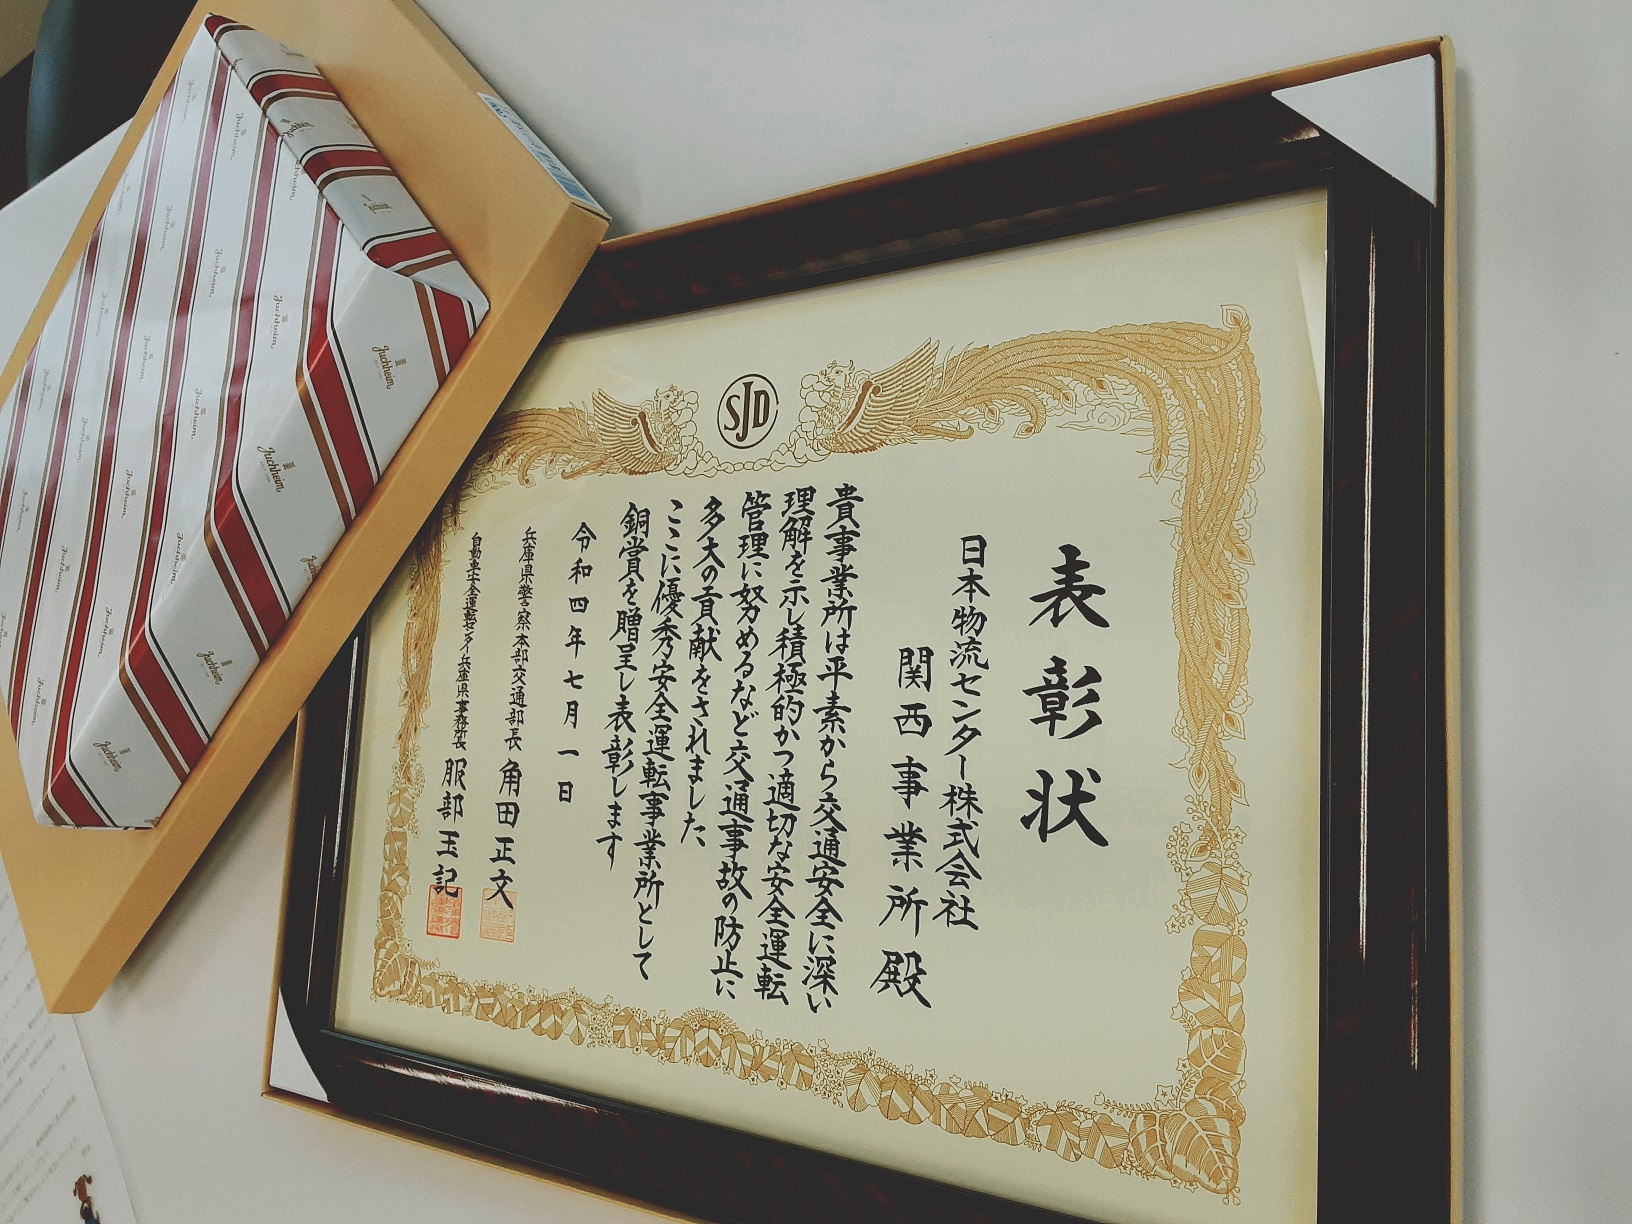 表彰状
日本物流センター株式会社
関西事業所殿
貴事業所は平素から交通安全に深い
理解を示し積極的かつ適切な安全運転
管理に努めるなど交通事故の防止に
多大の貢献をされました
ここに優秀安全運転事業所として
銅賞を贈呈し表彰します
令和四年七月一日
兵庫県警察本部交通部長 角田正文
自動車安全運転センター兵庫県事務所長 服部玉記
SJD
Juchheim
Juchheim
Juchheim
Juchheim
Juchheim
Juchheim
Juchheim
Juchheim
Juchheim
Juchheim
Juchheim